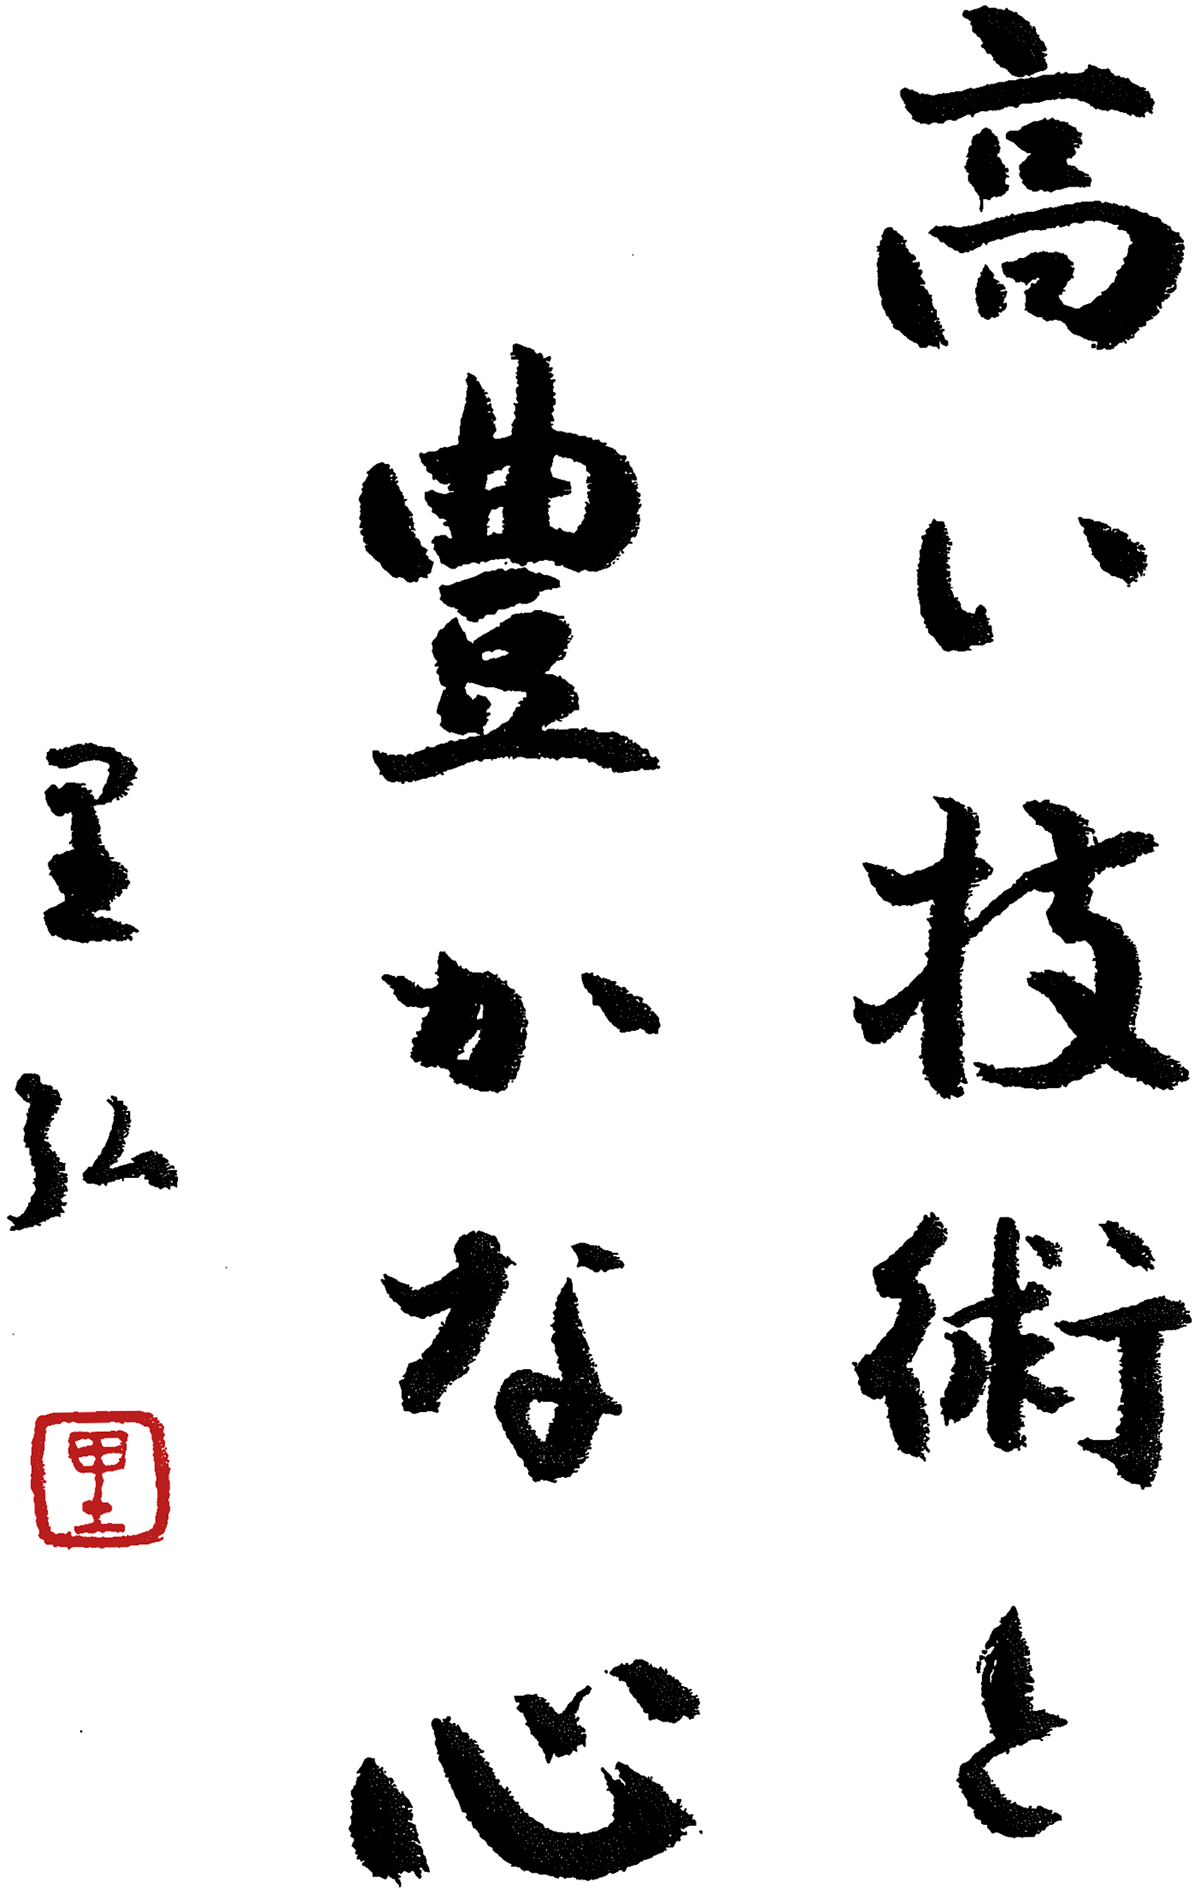 高い技術と
豊かな心
里弘
里